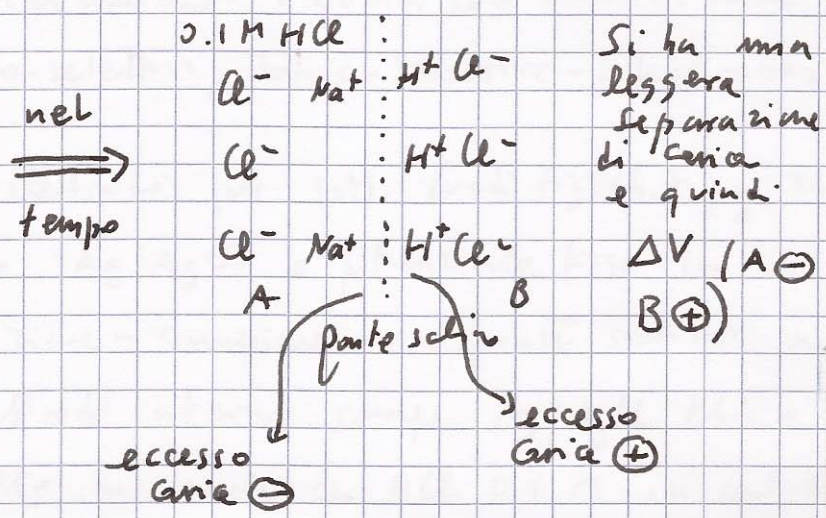 0.1 M HCl
Cl⁻ Na⁺ H⁺ Cl⁻
nel
Cl⁻ H⁺ Cl⁻
tempo
Cl⁻ Na⁺ H⁺ Cl⁻
A B
ponte salino
eccesso
carica ⊖
eccesso
carica ⊕
Si ha una
leggera
separazione
di carica
e quindi
ΔV (A ⊖
B ⊕)